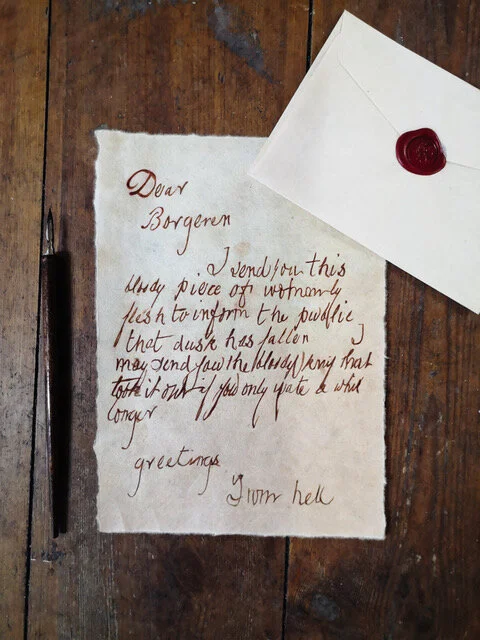 Dear
Borgeren
I send you this
bloody piece of womanly
flesh to inform the public
that dusk has fallen I
may send you the bloody knif that
took it out if you only wate a whil
longer
greetings
From hell